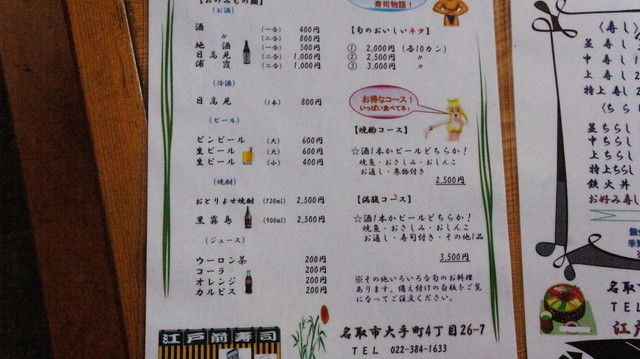 【おのみもの類】
(お酒)
酒 (一合) 400円
〃 (二合) 800円
地酒 (一合) 500円
日高見 (二合) 1,000円
浦霞 (二合) 1,000円
(冷酒)
日高見 (1本) 800円
(ビール)
ビンビール (大) 600円
生ビール (大) 600円
生ビール (小) 400円
(焼酎)
おとりよせ焼酎 (720ml) 2,500円
黒霧島 (900ml) 2,500円
(ジュース)
ウーロン茶 200円
コーラ 200円
オレンジ 200円
カルピス 200円
江戸前寿司
寿司物語!
【旬のおいしいネタ】
① 2,000円 (各10カン)
② 2,500円 〃
③ 3,000円 〃
お得なコース!
いっぱい食べてネ♪
【晩酌コース】
☆酒1本かビールどちらか!
焼魚・おさしみ・おしんこ
お通し・巻物付き
2,500円
【満腹コース】
☆酒1本かビールどちらか!
焼魚・おさしみ・おしんこ
お通し・寿司付き・その他1品
3,500円
※その他いろいろな旬のお料理
あります。備え付けの白板をご覧
になってご注文ください。
名取市大手町4丁目26-7
TEL 022-384-1633
〈寿し〉
並寿し
中寿し
上寿し
特上寿し
〈ちら
並ちらし
中ちらし
上ちらし
特上ちらし
鉄火丼
お好み寿し
名取
TEL
江戸